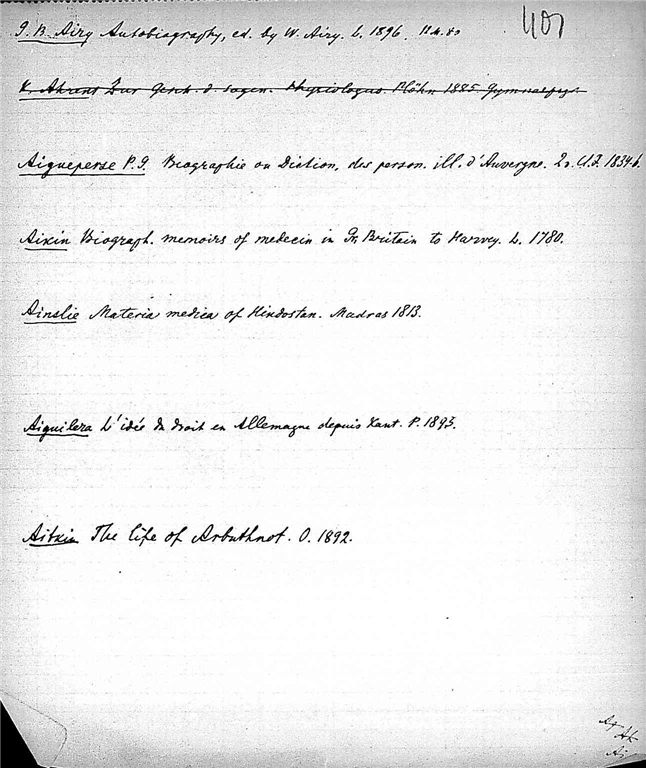 G. B. Airy Autobiography, ed. by W. Airy. L. 1896
K. Ahrens Zur Gesch. d. sogen. Physiologus. Plöhn 1885. Gymnasprgr.
Aigueperse P. G. Biographie ou Diction. des person. ill. d'Auvergne. 2v. Cl. F. 1834-6.
Aikin Biograph. memoirs of medecin in Gr. Britain to Harvey. L. 1780.
Ainslie Materia medica of Hindostan. Madras 1813.
Aiguilera L'idée du droit en Allemagne depuis Kant. P. 1893.
Aitkin The life of Arbuthnot. O. 1892.